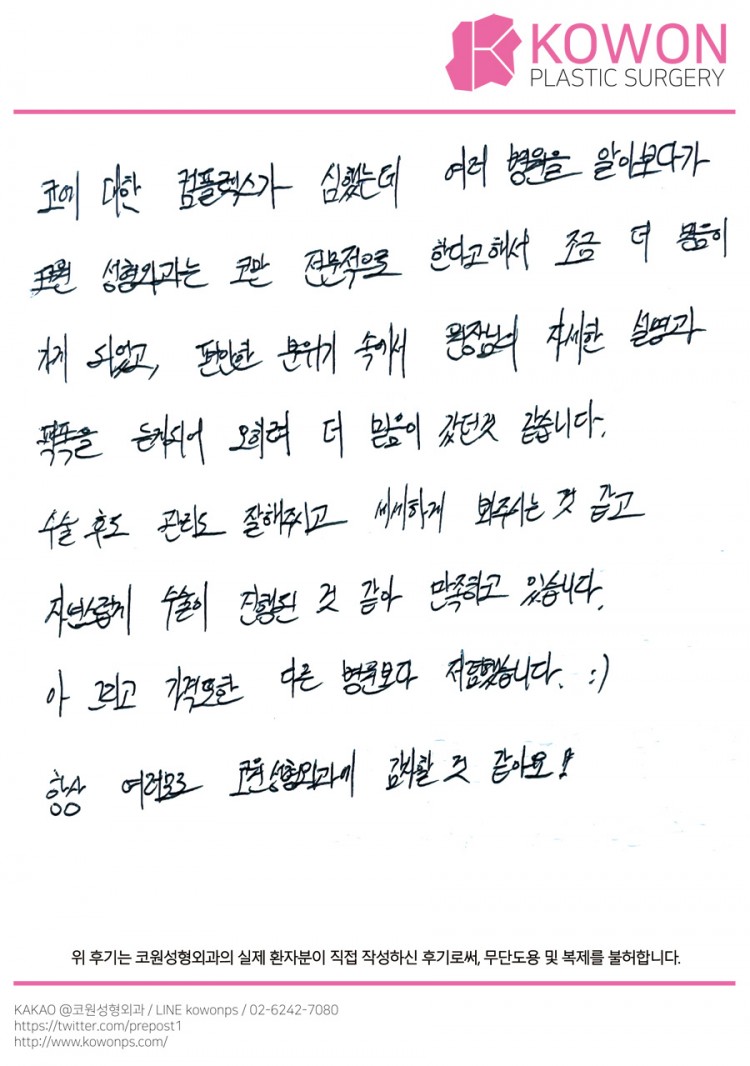 KOWON
PLASTIC SURGERY
코에 대한 컴플렉스가 심했는데 여러 병원을 알아보다가
코원 성형외과는 코만 전문적으로 한다고해서 조금 더 믿음이
가게 되었고, 편안한 분위기 속에서 원장님의 자세한 설명과
듣게되어 오히려 더 믿음이 갔던것 같습니다.
수술 후도 관리도 잘해주시고 세세하게 봐주시는 것 같고
자연스럽게 수술이 진행된 것 같아 만족하고 있습니다.
아 그리고 가격또한 다른 병원보다 저렴했습니다. :)
항상 여러모로 코원성형외과에 감사할 것 같아요!
위 후기는 코원성형외과의 실제 환자분이 직접 작성하신 후기로써, 무단도용 및 복제를 불허합니다.
KAKAO @코원성형외과 / LINE kowonps / 02-6242-7080
https://twitter.com/prepost1
http://www.kowonps.com/